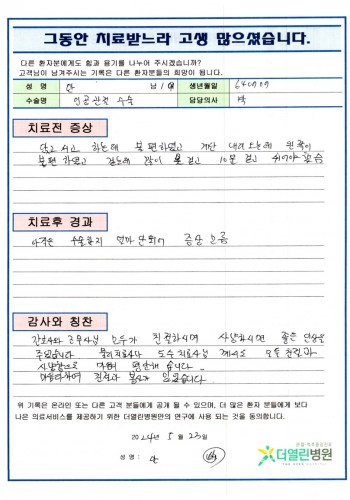 그동안 치료받느라 고생 많으셨습니다.
다른 환자분에게도 함과 용기를 나누어 주시겠습니까?
고객님이 남겨주시는 기록은 다른 환자분들의 희망이 됩니다.
성 명 안 남 / 여 생년월일
수술명 인공관절 수술 담당의사 박
치료전 증상
걷고 서고 하는데 불편하였고 계단 내려오는데
불편하였고 걷는데 많이 못 걷고 10분 걷고 쉬어야 했음
치료후 경과
아직은 수술한지 얼마 안되어 증상 모름
감사와 칭찬
간호사와 근무사님 모두가 친절하시며 상냥하시며 좋은 인상을
주었습니다 물리치료사나 도수치료사님 께서도 모두 친절과
편안했습니다
친절과 봉사
위 기록은 온라인 또는 다른 고객 분들에게 공개 될 수 있으며, 더 많은 환자 분들에게 보다
나은 의료서비스를 제공하기 위한 더열린병원만의 연구에 사용 되는 것을 동의합니다.
2024년 5월 23일
성 명 : 안
더열린병원